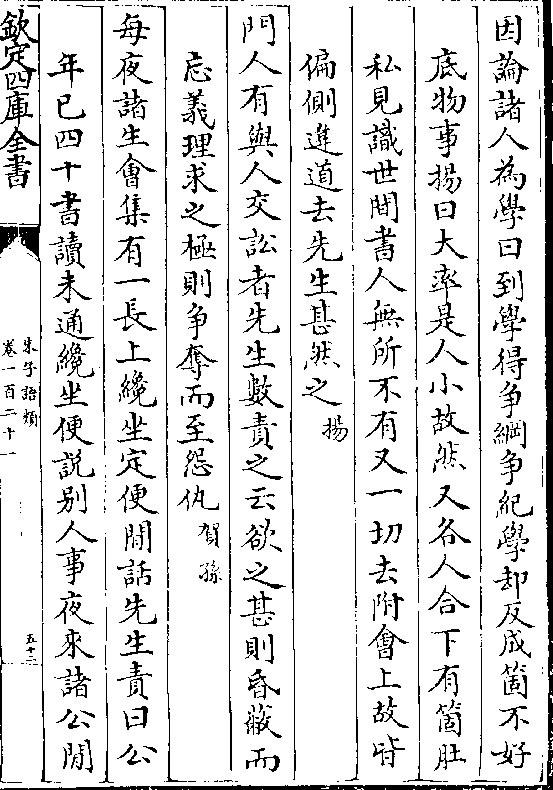 因論諸人為學曰到學得爭綱爭紀學却反成箇不好
底物事揚曰大率是人小故然又各人合下有箇肚
私見識世間書人無所不有又一切去附會上故皆
偏側進道去先生甚然之 揚
門人有與人交訟者先生數責之云欲之甚則昏蔽而
忘義理求之極則爭奪而至怨仇 賀孫
每夜諸生會集有一長上纔坐定便閒話先生責曰公
年已四十書讀未通纔坐便説别人事夜來諸公閒
欽定四庫全書
朱子語類
卷一百二十一
五十二